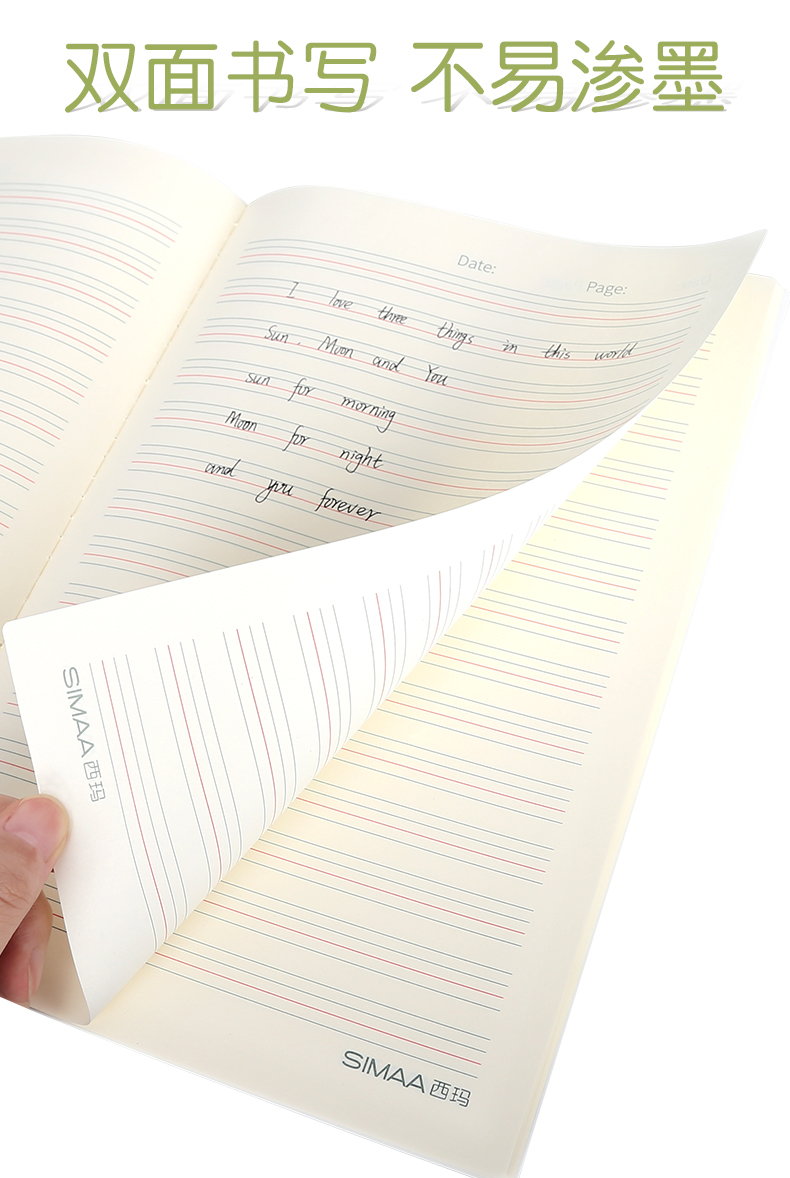 双面书写 不易渗墨
Date:
Page:
I love three things in this world
Sun, Moon and You
Sun for morning
Moon for night
and you forever
SIMAA 西玛
SIMAA 西玛